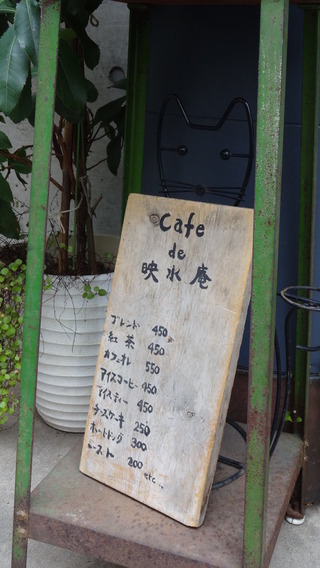 Cafe
de
映水庵
ブレンド 450
紅茶 450
カフェオレ 550
アイスコーヒー 450
アイスティー 450
チーズケーキ 250
ホットドッグ 300
トースト 200
etc...